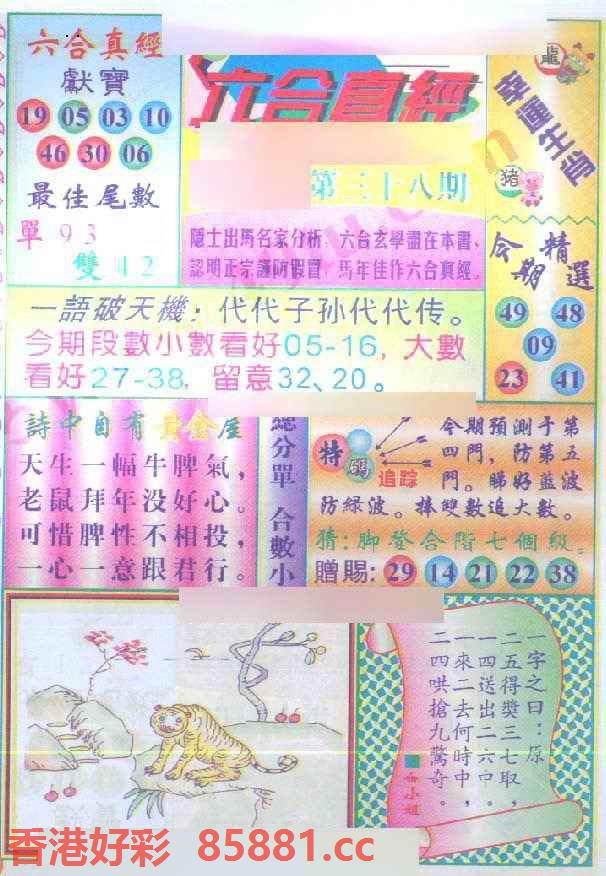 六合真經
獻寶
19 05 03 10
46 30 06
最佳尾數
單 9 3
雙 4 2
六合真經
第三十八期
隱士出馬名家分析，六合玄學盡在本書、
認明正宗謹防假冒，馬年佳作六合真經。
龍
幸運生肖
豬
今期精選
49 48
09
23 41
一語破天機：代代子孙代代传。
今期段數小數看好05-16，大數
看好27-38，留意32、20。
詩中自有黃金屋
天生一幅牛脾氣，
老鼠拜年没好心。
可惜脾性不相投，
一心一意跟君行。
總分單 合數小
特碼
追踪
今期預測于第
四門，防第五
門。睇好蓝波
防緑波。捧雙數追大數。
猜：脚登合階七個級。
贈賜：29 14 21 22 38
一字之曰：原
二五得獎三七取，
一四送出二六中。
一來二去何時中，
二四哄搶九驚奇。
香港好彩 85881.cc